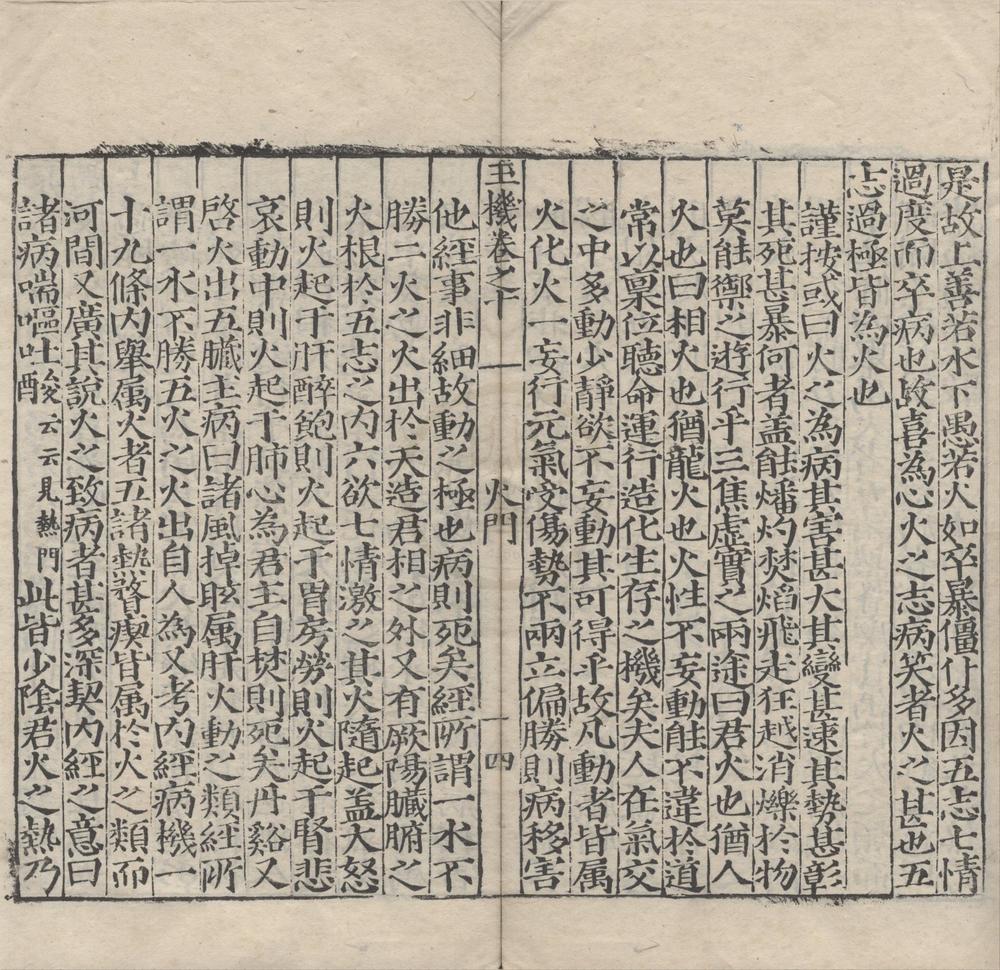 是故上善若水下愚若火如卒暴僵仆多因五志七情
過度而卒病也故喜為心火之志病笑者火之甚也五
志過極皆為火也
謹按或曰火之為病其害甚大其變甚速其勢甚彰
其死甚暴何者盖能燔灼焚焰飛走狂越消爍於物
莫能禦之遊行乎三焦虚實之兩途曰君火也猶人
火也曰相火也猶龍火也火性不妄動能不違於道
常以稟位聽命運行造化生存之機矣夫人在氣交
之中多動少靜欲不妄動其可得乎故凡動者皆属
火化火一妄行元氣受傷勢不兩立偏勝則病移害
玉機卷之十 火門 四
他經事非細故動之極也病則死矣經所謂一水不
勝二火之火出於天造君相之外又有厥陽臟腑之
火根於五志之内六欲七情激之其火隨起盖大怒
則火起于肝醉飽則火起于胃房勞則火起于腎悲
哀動中則火起于肺心為君主自焚則死矣丹谿又
啓火出五臟主病曰諸風掉眩属肝火動之類經所
謂一水不勝五火之火出自人為又考内經病機一
十九條内舉属火者五諸熱瞀瘛皆属於火之類而
河間又廣其說火之致病者甚多深契内經之意曰
諸病喘嘔吐酸云云見熱門此皆少陰君火之熱乃